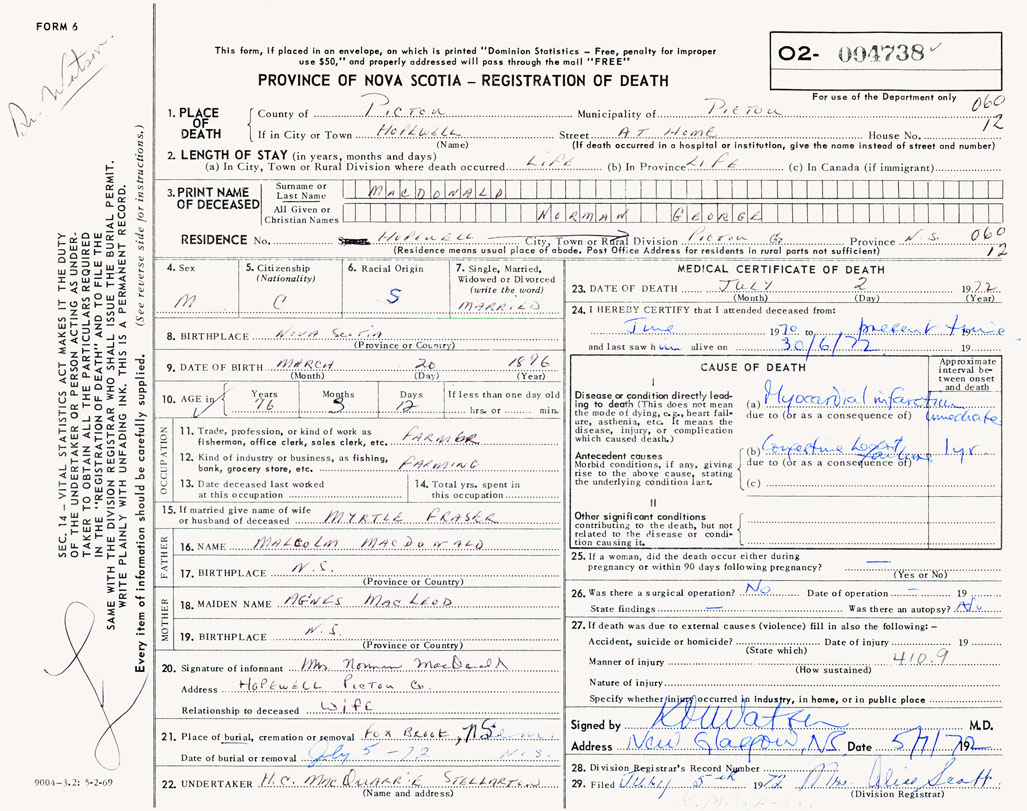 FORM 6
Dr. Watson
This form, if placed in an envelope, on which is printed "Dominion Statistics – Free, penalty for improper
use $50," and properly addressed will pass through the mail "FREE"
PROVINCE OF NOVA SCOTIA – REGISTRATION OF DEATH
02- 004738
For use of the Department only
060
12
1. PLACE OF DEATH
County of PICTOU Municipality of PICTOU
If in City or Town HOPEWELL Street AT HOME House No.
(Name) (If death occurred in a hospital or institution, give the name instead of street and number)
2. LENGTH OF STAY (in years, months and days)
(a) In City, Town or Rural Division where death occurred LIFE (b) In Province LIFE (c) In Canada (if immigrant)
3. PRINT NAME OF DECEASED
Surname or Last Name MACDONALD
All Given or Christian Names NORMAN GEORGE
RESIDENCE No. Street HOPEWELL City, Town or Rural Division PICTOU Co Province N.S. 060
(Residence means usual place of abode. Post Office Address for residents in rural parts not sufficient) 12
4. Sex
M
5. Citizenship
(Nationality)
C
6. Racial Origin
5
7. Single, Married,
Widowed or Divorced
(write the word)
MARRIED
8. BIRTHPLACE NOVA SCOTIA
(Province or Country)
9. DATE OF BIRTH MARCH 20 1896
(Month) (Day) (Year)
10. AGE in Years Months Days If less than one day old
76 3 12 hrs. or min.
OCCUPATION
11. Trade, profession, or kind of work as
fisherman, office clerk, sales clerk, etc. FARMER
12. Kind of industry or business, as fishing,
bank, grocery store, etc. FARMING
13. Date deceased last worked
at this occupation
14. Total yrs. spent in
this occupation
15. If married give name of wife
or husband of deceased MYRTLE FRASER
FATHER
16. NAME MALCOLM MACDONALD
17. BIRTHPLACE N.S.
(Province or Country)
MOTHER
18. MAIDEN NAME AGNES MACLEOD
19. BIRTHPLACE N.S.
(Province or Country)
20. Signature of informant Mrs Norman MacDonald
Address HOPEWELL PICTOU Co.
Relationship to deceased Wife
21. Place of burial, cremation or removal FOX BROOK, NS
Date of burial or removal July 5-72 N.S.
22. UNDERTAKER H.C. MACQUARRIE STELLARTON
(Name and address)
MEDICAL CERTIFICATE OF DEATH
23. DATE OF DEATH JULY 2 1972
(Month) (Day) (Year)
24. I HEREBY CERTIFY that I attended deceased from:
June 1970 to present time 19
and last saw him alive on 30/6/72 19
CAUSE OF DEATH
Approximate
interval be-
tween onset
and death
I
Disease or condition directly lead-
ing to death (This does not mean
the mode of dying, e.g., heart fail-
ure, asthenia, etc. It means the
disease, injury, or complication
which caused death.)
(a) Myocardial infarction
due to (or as a consequence of) immediate
Antecedent causes
Morbid conditions, if any, giving
rise to the above cause, stating
the underlying condition last.
(b) Congestive heart failure 1 yr
due to (or as a consequence of)
(c)
II
Other significant conditions
contributing to the death, but not
related to the disease or condi-
tion causing it.
25. If a woman, did the death occur either during
pregnancy or within 90 days following pregnancy? —
(Yes or No)
26. Was there a surgical operation? No Date of operation – 19
State findings — Was there an autopsy? No
27. If death was due to external causes (violence) fill in also the following: –
Accident, suicide or homicide? Date of injury 19
(State which)
Manner of injury 410.9
(How sustained)
Nature of injury
Specify whether injury occurred in industry, in home, or in public place
Signed by KDWatson M.D.
Address New Glasgow, NS Date 5/7/72
28. Division Registrar's Record Number
29. Filed July 5th 1972 Mrs. Alice Scott
(Division Registrar)
SEC. 14 – VITAL STATISTICS ACT MAKES IT THE DUTY
OF THE UNDERTAKER OR PERSON ACTING AS UNDER-
TAKER TO OBTAIN ALL THE PARTICULARS REQUIRED
IN THE "REGISTRATION OF DEATH" AND TO FILE THE
SAME WITH THE DIVISION REGISTRAR WHO SHALL ISSUE THE BURIAL PERMIT.
WRITE PLAINLY WITH UNFADING INK. THIS IS A PERMANENT RECORD.
Every item of information should be carefully supplied. (See reverse side for instructions.)
9004-3.2: 5-2-69